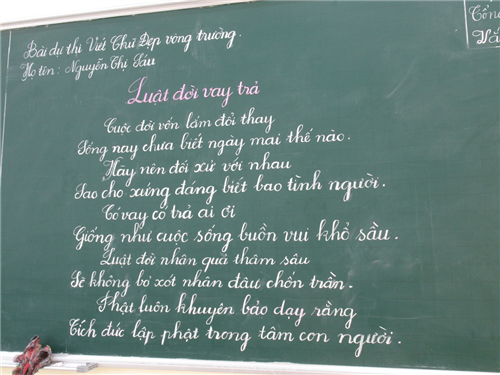 Bài dự thi Viết Chữ Đẹp vòng trường.
Họ tên: Nguyễn Thị Sáu
Luật đời vay trả
Cuộc đời vốn lắm đổi thay
Sống nay chưa biết ngày mai thế nào.
Hãy nên đối xử với nhau
Sao cho xứng đáng biết bao tình người.
Có vay có trả ai ơi
Giống như cuộc sống buồn vui khổ sầu.
Luật đời nhân quả thâm sâu
Sẽ không bỏ xót nhân đâu chốn trần.
Phật luôn khuyên bảo dạy rằng
Tích đức lập phật trong tâm con người.
Tổng